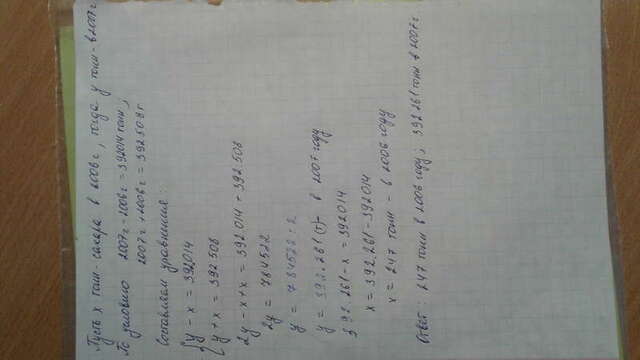 Пусть х тонн - сахара в 2006г, тогда у тонн - в 2007г
По условию 2007г - 2006г = 392014 тонн;
2007г + 2006г = 392508т
Составляем уравнения:
y - x = 392014
y + x = 392.508
2y - x + x = 392.014 + 392.508
2y = 784522
y = 784522 : 2
y = 392.261 (т) - в 2007 году
392.261 - x = 392014
x = 392.261 - 392014
x = 247 тонн - в 2006 году
Ответ: 247 тонн в 2006 году; 392261 тонн в 2007г